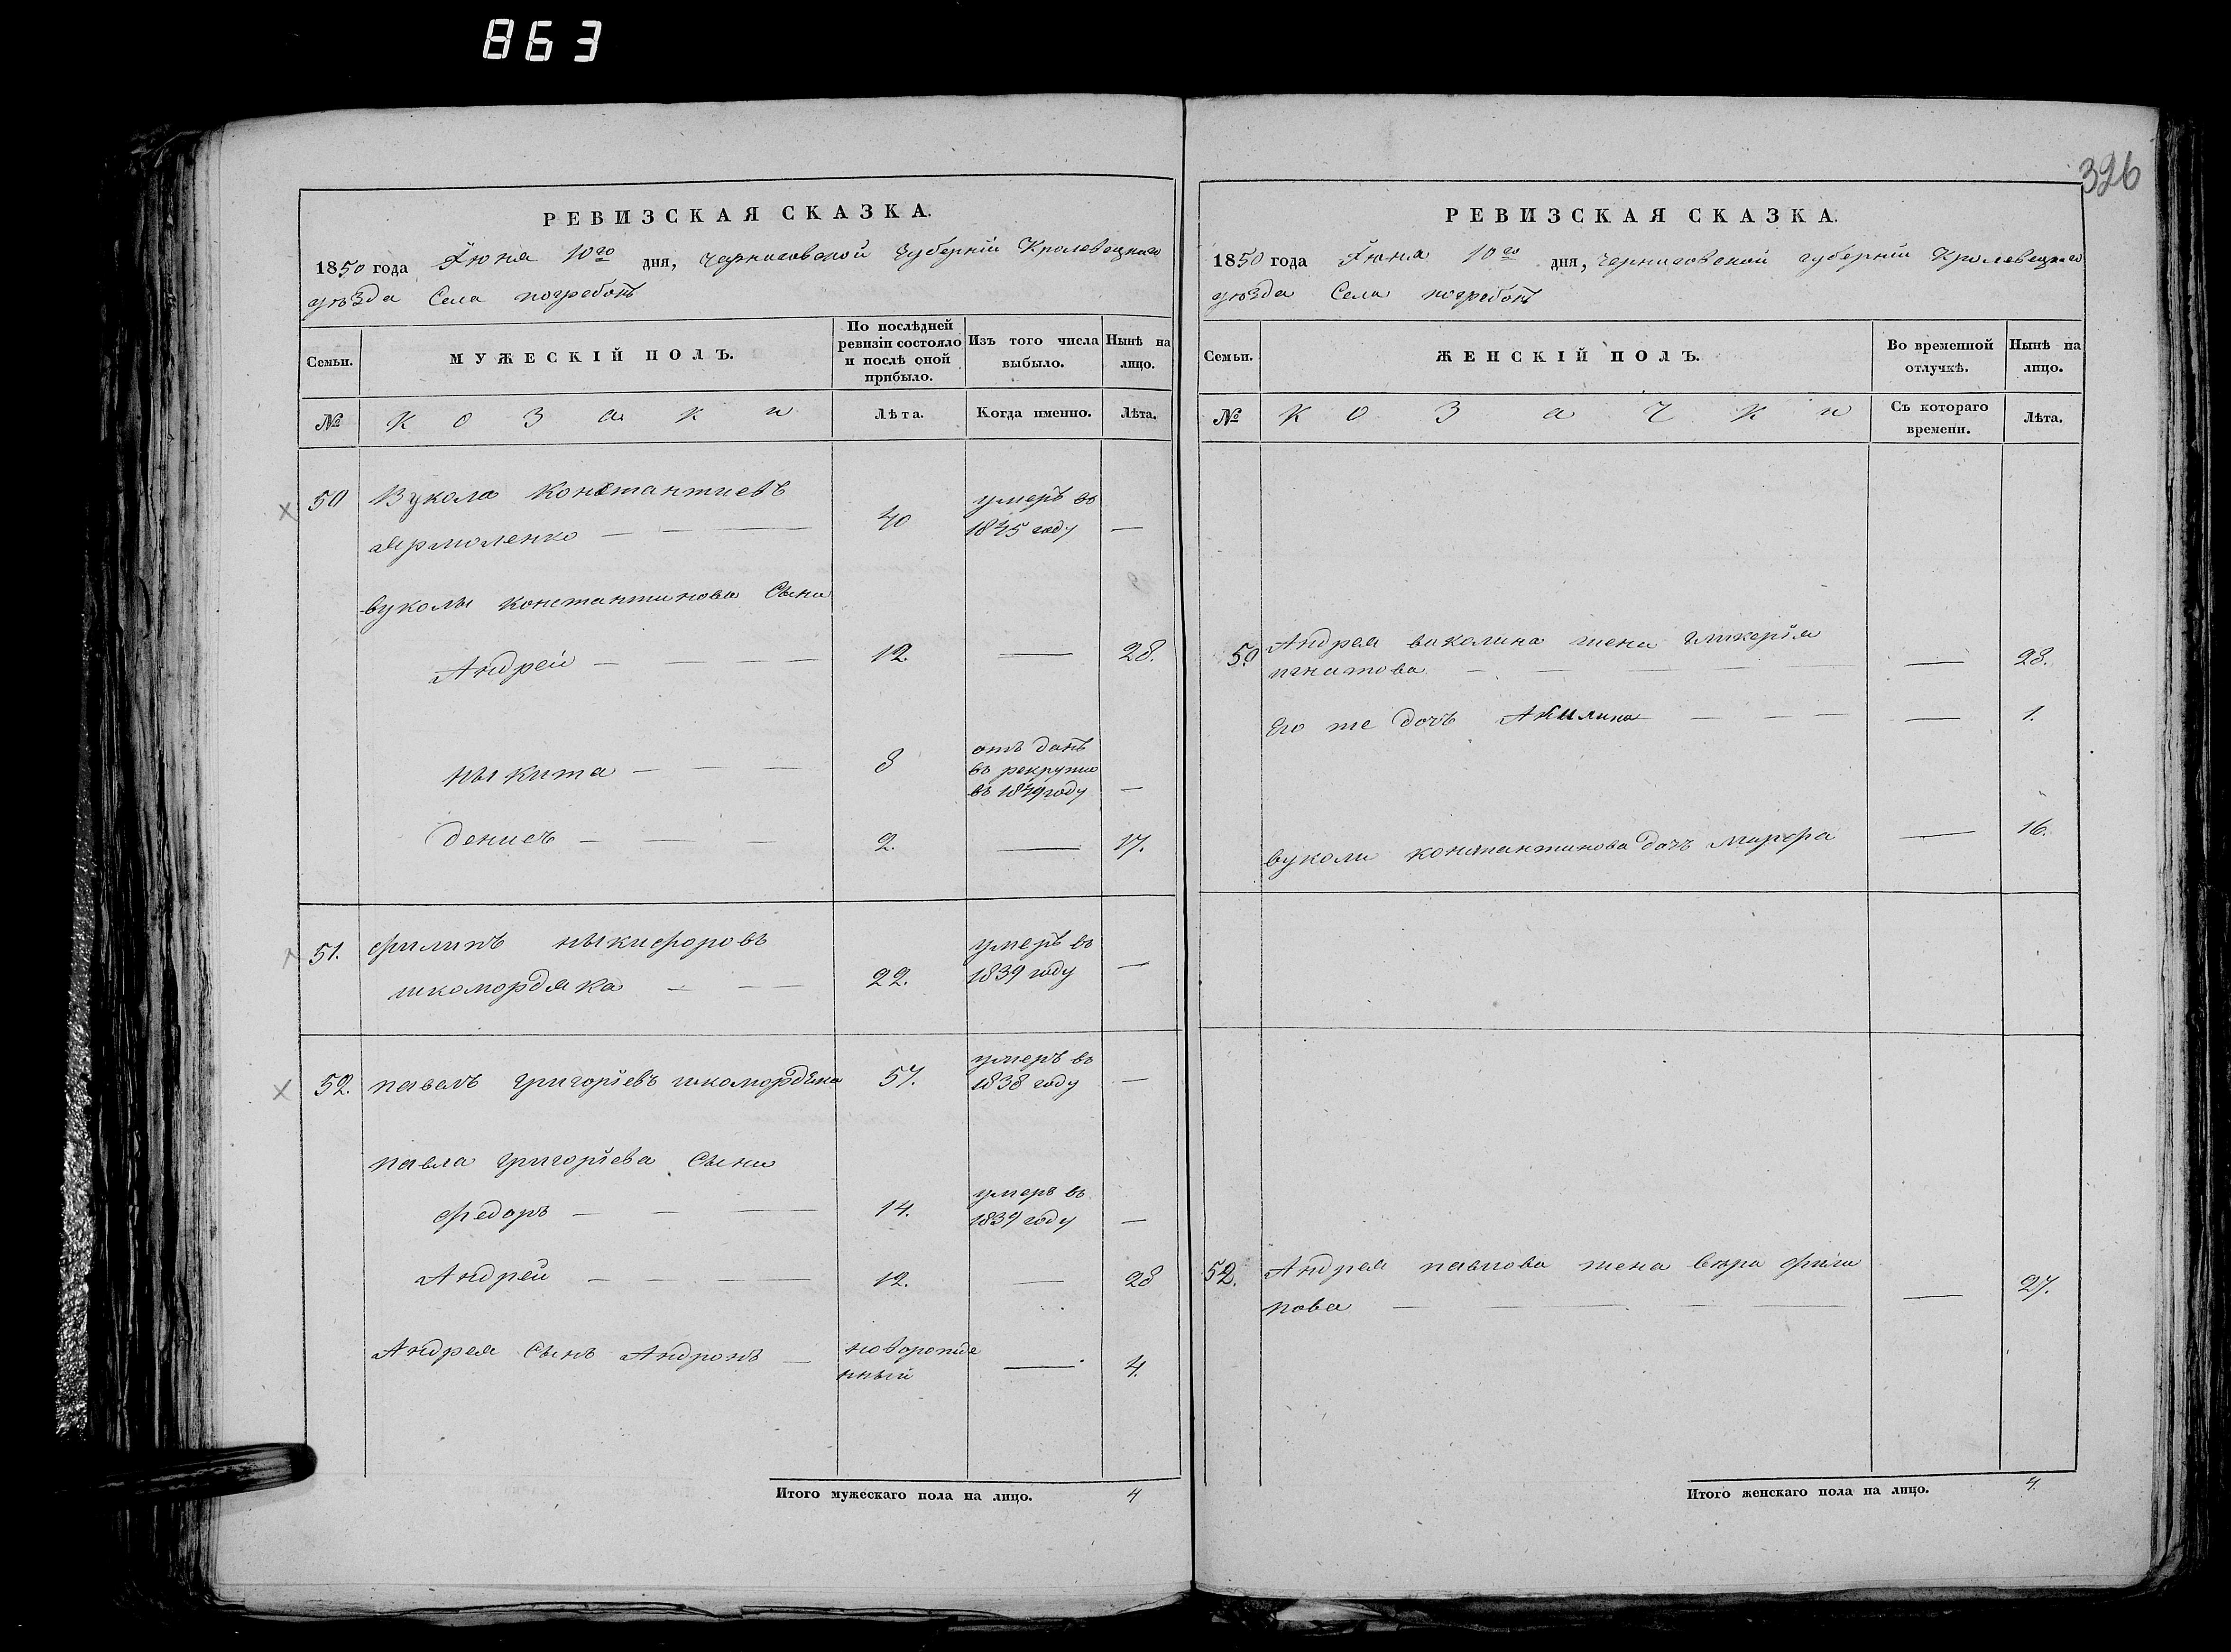 863
326
РЕВИЗСКАЯ СКАЗКА.
1850 года Іюня 10го дня, Черниговской Губерніи Кролевецкаго
уѣзда Села погребокъ
Семьи. МУЖЕСКІЙ ПОЛЪ. По послѣдней ревизіи состояло и послѣ оной прибыло. Изъ того числа выбыло. Нынѣ на лицо.
№ Козаки Лѣта. Когда именно. Лѣта.
50 Вукола Константиевъ умеръ въ
Ярмоленко — — — 40 1845 году —
вуколы константинова Сыни
Андрей — — — — 12. — 28.
отъ данъ
ныкита — — — 8 въ рекруты
въ 1849 году —
денисъ — — — 2. — 17.
51. филипъ ныкифоровъ умеръ въ
шкомордяка — — — 22. 1839 году —
умеръ въ
52. павелъ григоріевъ шкомордяка 57. 1838 году —
павла григоріева Сыни
умеръ въ
федоръ — — — 14. 1839 году —
Андрей — — — — 12. — 28
Андрея Сынъ Андронъ — новорожде
нный — 4.
Итого мужескаго пола на лицо. 4
РЕВИЗСКАЯ СКАЗКА.
1850 года Іюня 10го дня, Черниговской губерніи Кролевецкаго
уѣзда Села погребокъ
Семьи. ЖЕНСКІЙ ПОЛЪ. Во временной отлучкѣ. Нынѣ на лицо.
№ Козачки Съ котораго времени. Лѣта.
50 Андрея вуколина жена гликерія
игнатова — — — — 28.
Его же дочь Акилина — — — — 1.
вуколи константинова дочь Марфа — 16.
52. Андрея павлова жена вера фили
пова — — — — — — 27.
Итого женскаго пола на лицо. 4.